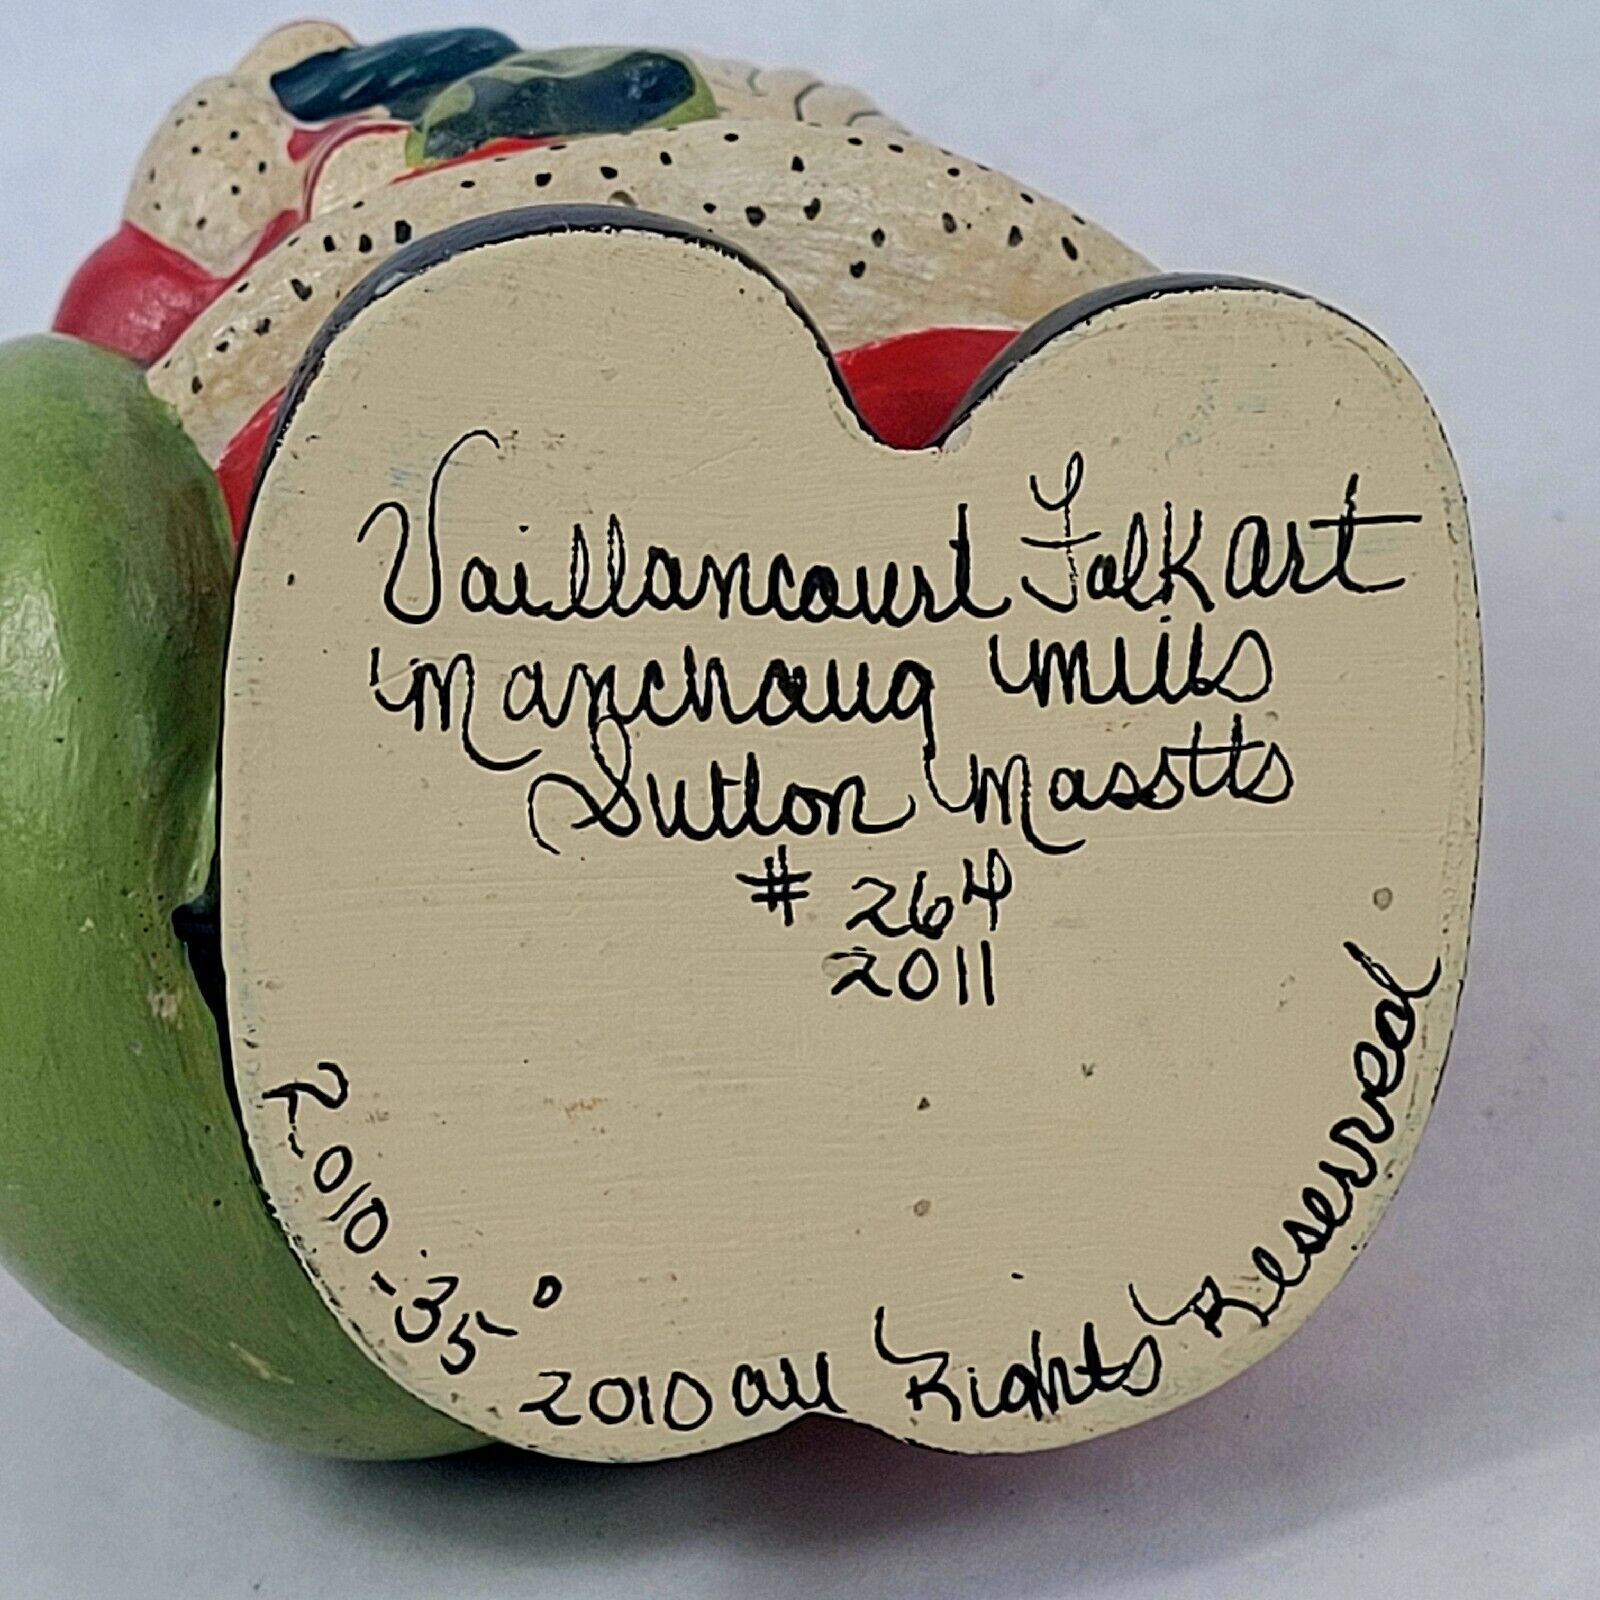 Vaillancourt Folk Art
Manchaug Mills
Sutton Massttts
# 264
2011
R-010-35
© 2010 All Rights Reserved